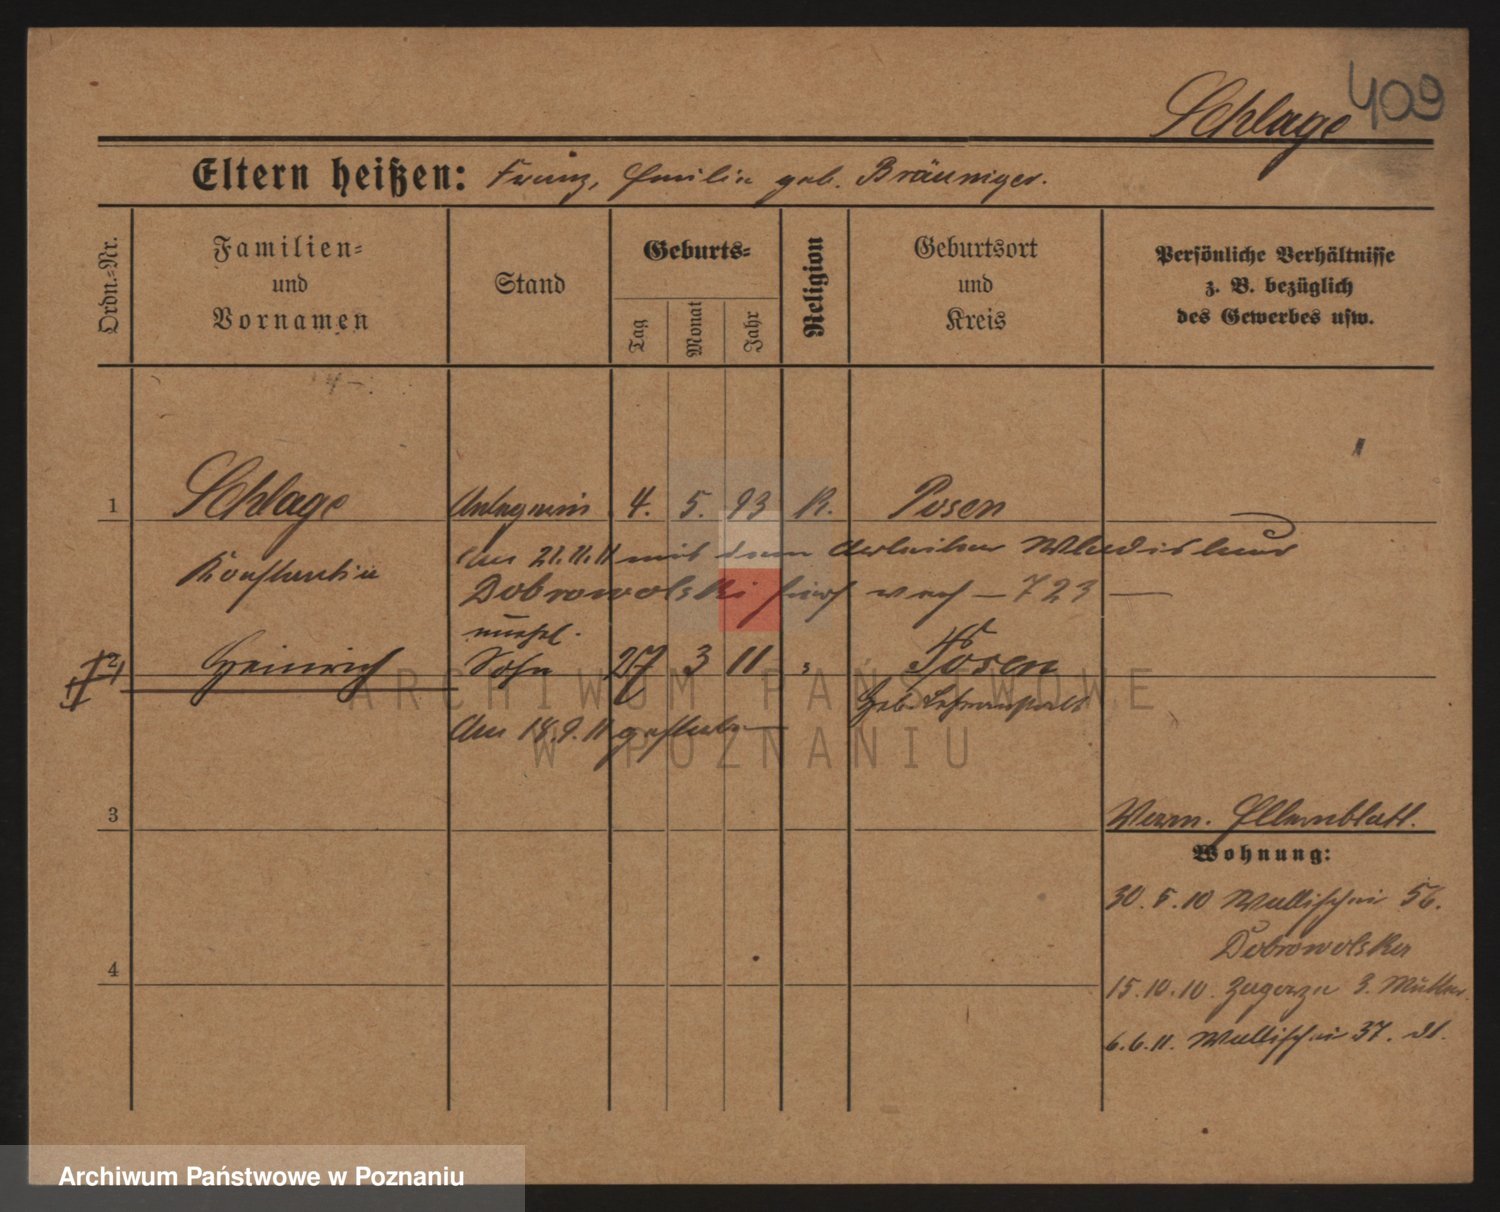 409
Schlage
Eltern heißen: Franz, Emilie geb. Bräuniger.
Ordn.-Nr.
Familien-
und
Vornamen
Stand
Geburts-
Tag
Monat
Jahr
Religion
Geburtsort
und
Kreis
Persönliche Verhältnisse
z. B. bezüglich
des Gewerbes usw.
1 Schlage 4. 5. 93 K. Posen
Konstantia Am 21.11.11 mit dem Arbeiter Wladislaus
Dobrowolski hier verh – 723 –
unehel.
2 Heinrich Sohn 27 3 11 " Posen
Am 18.9.11 gestorben
3
Verm. Elternblatt.
Wohnung:
30.5.10 Wallischei 56.
Dobrowolska
4
15.10.10. Zagorze 3. Müller
6.6.11. Wallischei 37.
ARCHIWUM PAŃSTWOWE
W POZNANIU
Archiwum Państwowe w Poznaniu